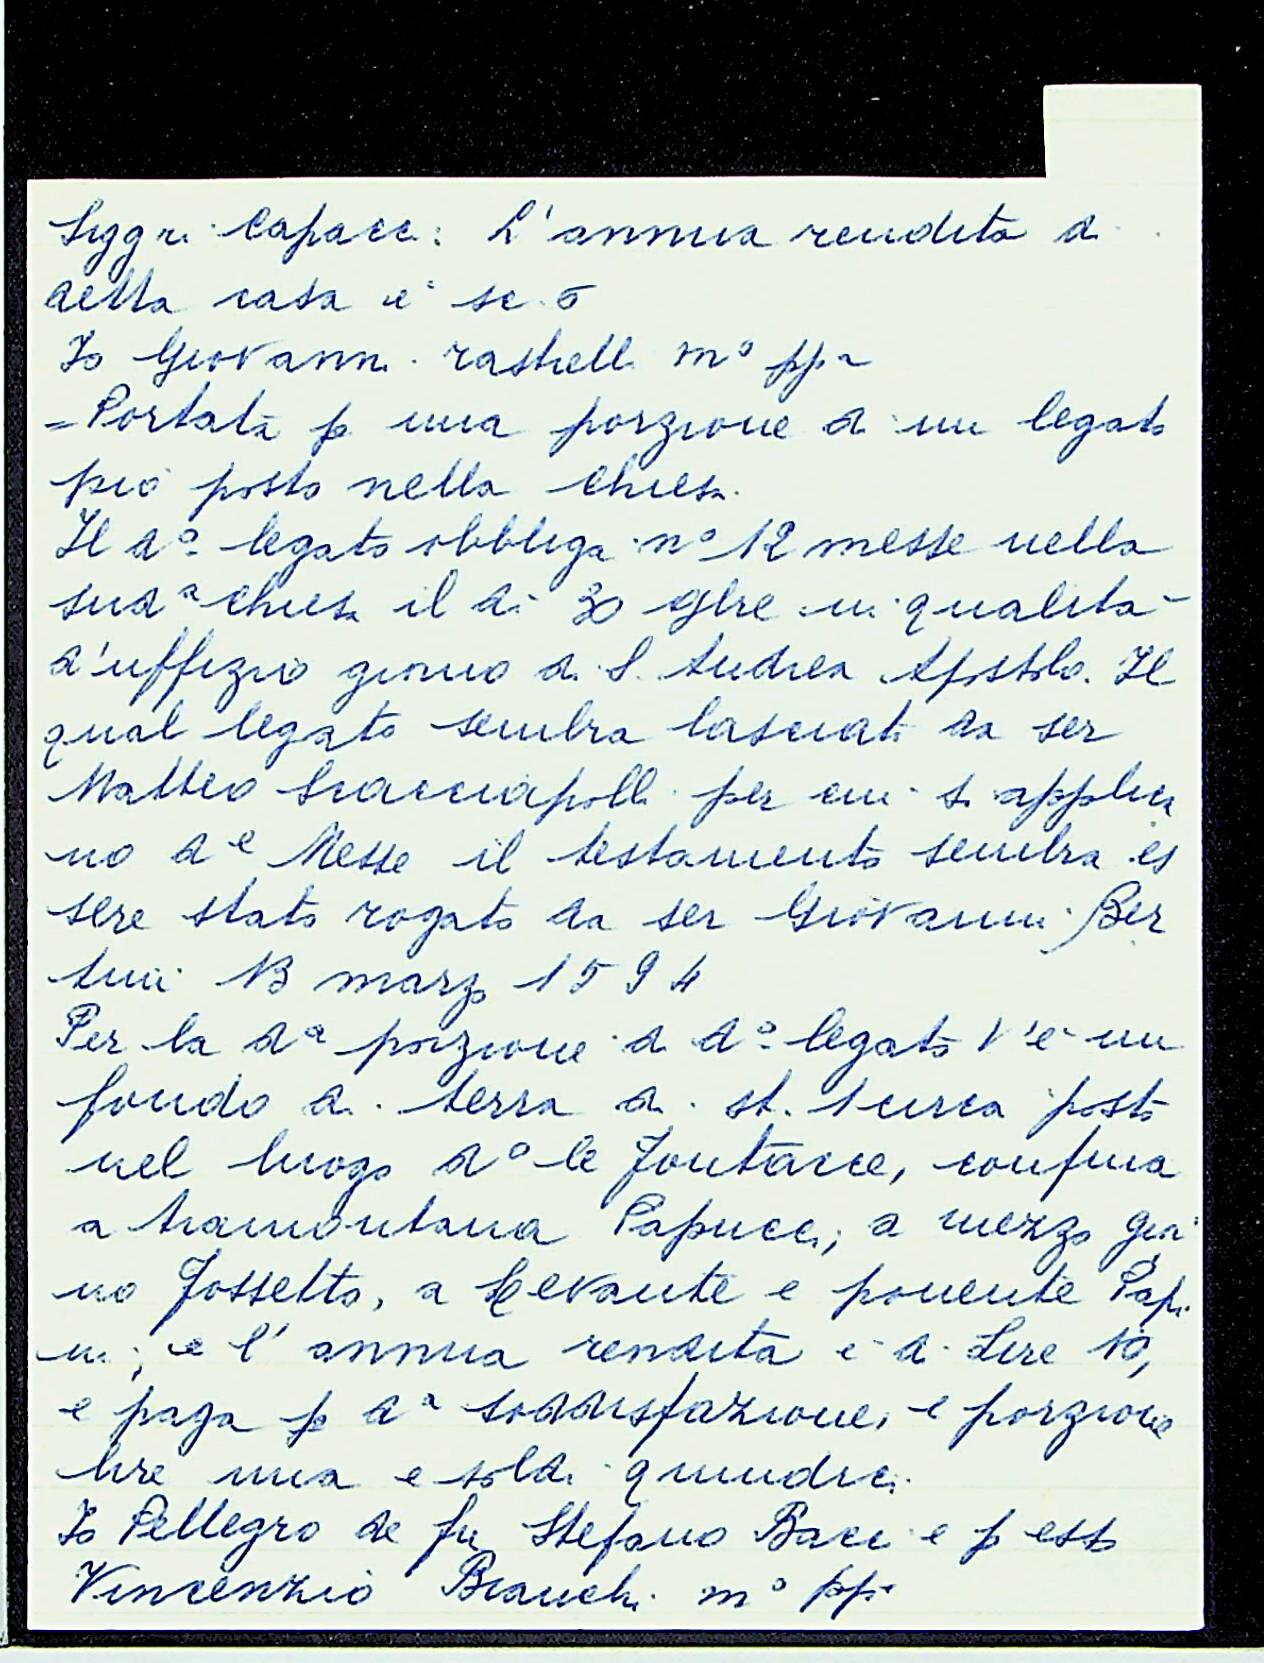 Siggri Capacci: L'annua rendita di
detta casa è sc. 5
Io Giovanni rastrelli mº ppa
= Portata p una porzione di un legato
pio posto nella chiesa.
Il dº legato obbliga nº 12 messe nella
sudª chiesa il dì 30 9bre in qualità
d'uffizio giorno di S. Andrea Apostolo. Il
qual legato sembra lasciato da ser
Matteo Scacciapolli per cui si applica
no dᵉ Messe il testamento sembra es
sere stato rogato da ser Giovanni Ber
tini 13 marzo 1594
Per la dª porzione di dº legato v'è un
fondo di terra di st. 1 circa posto
nel luogo dº le Fontacce, confina
a tramontana Papucci; a mezzo gior
no Fossetto, a Levante e ponente Papi
ni; e l'annua rendita è di Lire 10,
e paga p dª soddisfazione, e porzione
lire una e soldi quindici.
Io Pellegro de fu Stefano Bacci e p esso
Vincenzio Bianchi mº ppa